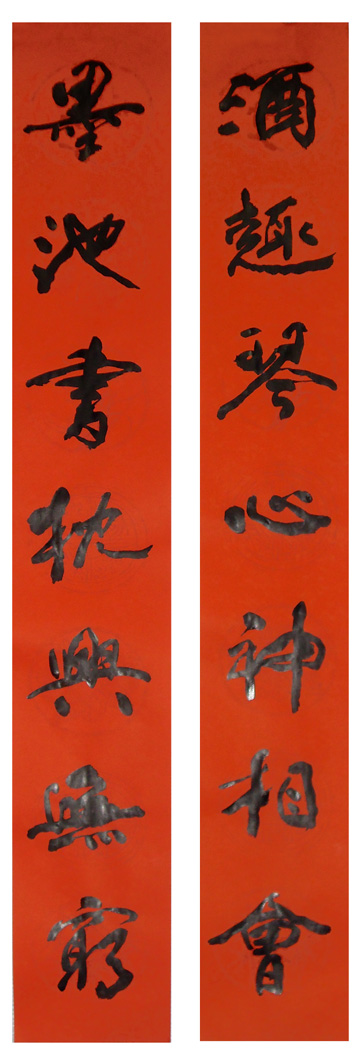 酒趣琴心神相會
墨池書枕興無窮